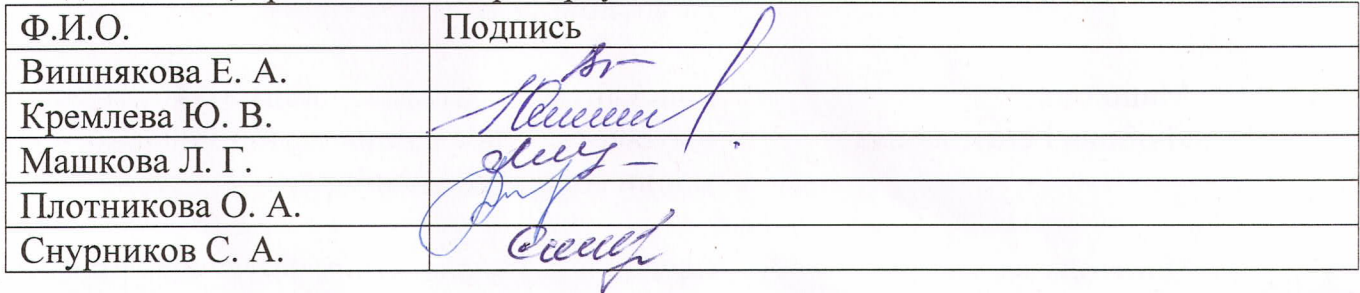 Ф.И.О. Подпись
Вишнякова Е. А.
Кремлева Ю. В.
Машкова Л. Г.
Плотникова О. А.
Снурников С. А.